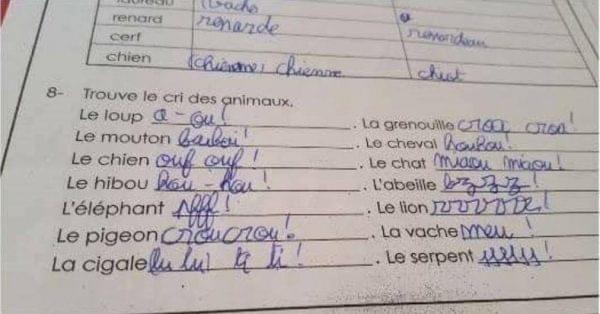 vache
renard renarde renardeau
cerf
chien (chienne, chienne chiot
8- Trouve le cri des animaux.
Le loup a - ou! . La grenouille croa, croa!
Le mouton . Le cheval houhou!
Le chien ouf ouf! . Le chat miaou miaou!
Le hibou hou - hou! . L'abeille bzzzz!
L'éléphant Pfff! . Le lion !
Le pigeon croucrou! . La vache meu!
La cigale lu lu! ti ti! . Le serpent !